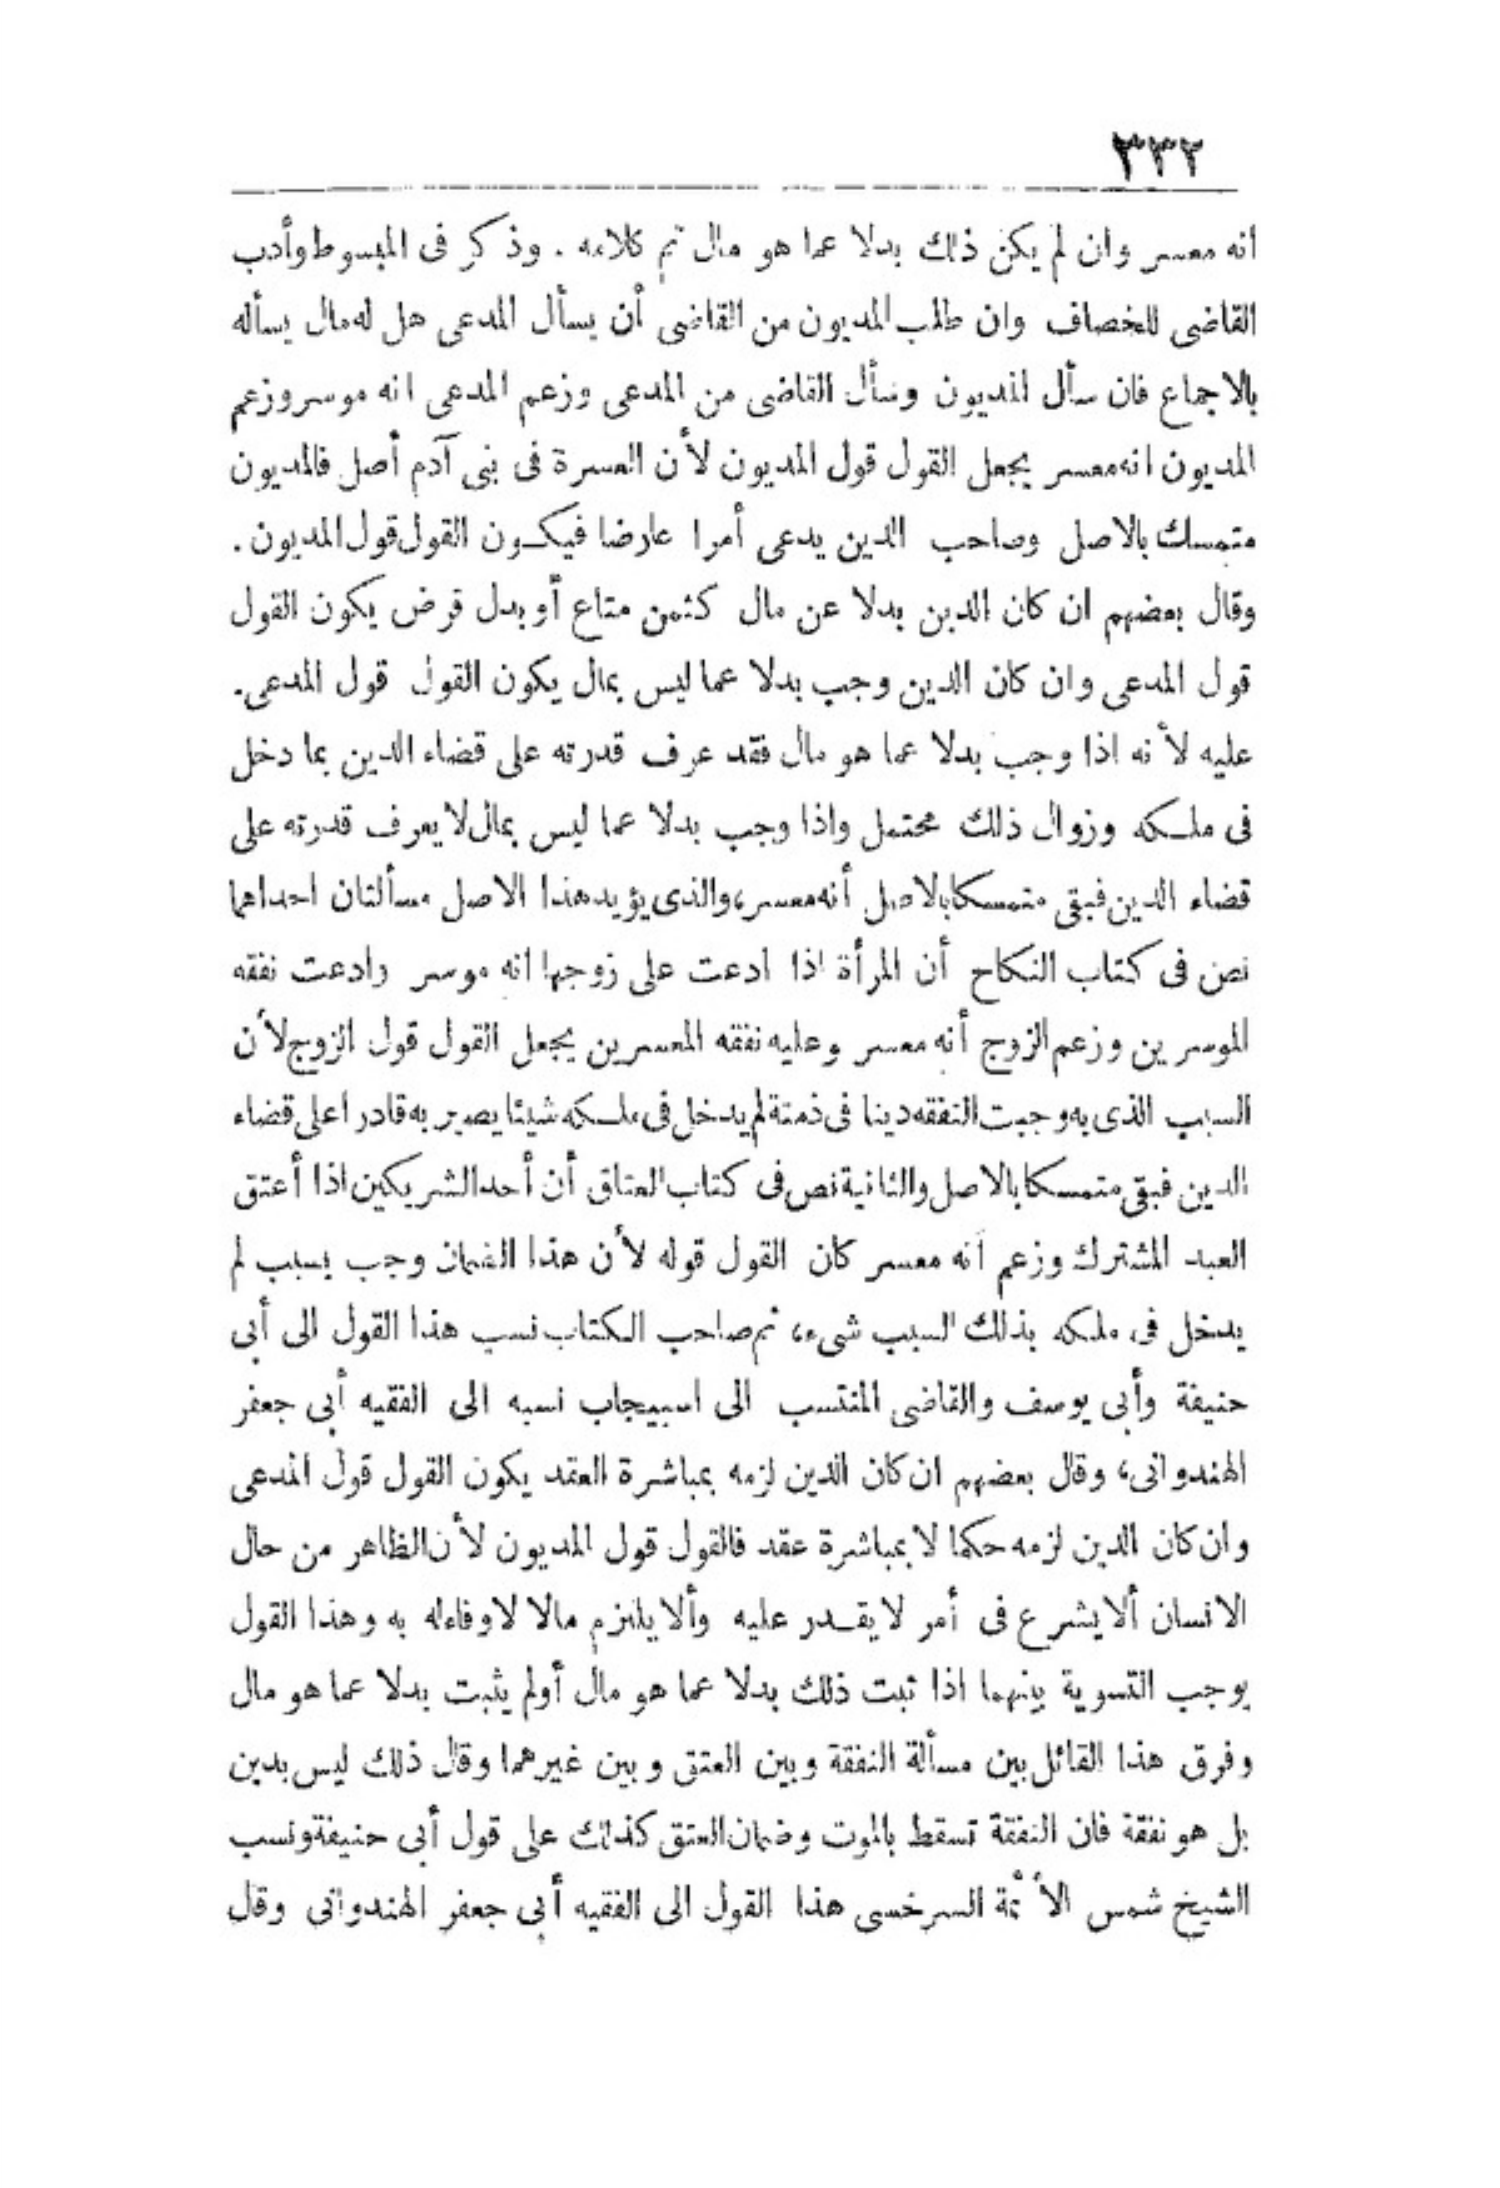 ٣٣٢
أنه معسر وان لم يكن ذلك بدلا عما هو مال تم كلامه . وذكر فى المبسوط وأدب
القاضى للخصاف وان طلب المديون من القاضى أن يسأل المدعى هل له مال يسأله
بالاجماع فان سأل المديون وسأل القاضى من المدعى وزعم المدعى انه موسر وزعم
المديون انه معسر يجعل القول قول المديون لأن العسرة فى بنى آدم أصل فالمديون
متمسك بالاصل وصاحب الدين يدعى أمرا عارضا فيكون القول قول المديون .
وقال بعضهم ان كان الدين بدلا عن مال كثمن متاع أو بدل قرض يكون القول
قول المدعى وان كان الدين وجب بدلا عما ليس بمال يكون القول قول المدعى.
عليه لأنه اذا وجب بدلا عما هو مال فقد عرف قدرته على قضاء الدين بما دخل
فى ملكه وزوال ذلك محتمل واذا وجب بدلا عما ليس بمال لا يعرف قدرته على
قضاء الدين فبقى متمسكا بالاصل أنه معسر، والذى يؤيد هذا الاصل مسألتان احداهما
نص فى كتاب النكاح أن المرأة اذا ادعت على زوجها انه موسر وادعت نفقه
الموسرين وزعم الزوج أنه معسر وعليه نفقه المعسرين يجعل القول قول الزوج لأن
السبب الذى به وجبت النفقه دينا فى ذمتة لم يدخل فى ملكه شيئا يصير به قادرا على قضاء
الدين فبقى متمسكا بالاصل والثانية نص فى كتاب العتاق أن أحد الشريكين اذا أعتق
العبد المشترك وزعم أنه معسر كان القول قوله لأن هذا الضمان وجب بسبب لم
يدخل فى ملكه بذلك السبب شىء، ثم صاحب الكتاب نسب هذا القول الى أبى
حنيفة وأبى يوسف والقاضى المنتسب الى اسبيجاب نسبه الى الفقيه أبى جعفر
الهندوانى، وقال بعضهم ان كان الدين لزمه بمباشرة العقد يكون القول قول المدعى
وان كان الدين لزمه حكما لا بمباشرة عقد فالقول قول المديون لأن الظاهر من حال
الانسان ألا يشرع فى أمر لا يقدر عليه وألا يلتزم مالا لا وفاء له به وهذا القول
يوجب التسوية بينهما اذا ثبت ذلك بدلا عما هو مال أو لم يثبت بدلا عما هو مال
وفرق هذا القائل بين مسألة النفقة وبين العتق وبين غيرهما وقال ذلك ليس بدين
بل هو نفقة فان النفقة تسقط بالموت وضمان العتق كذلك على قول أبى حنيفة ونسب
الشيخ شمس الأئمة السرخسى هذا القول الى الفقيه أبى جعفر الهندوانى وقال